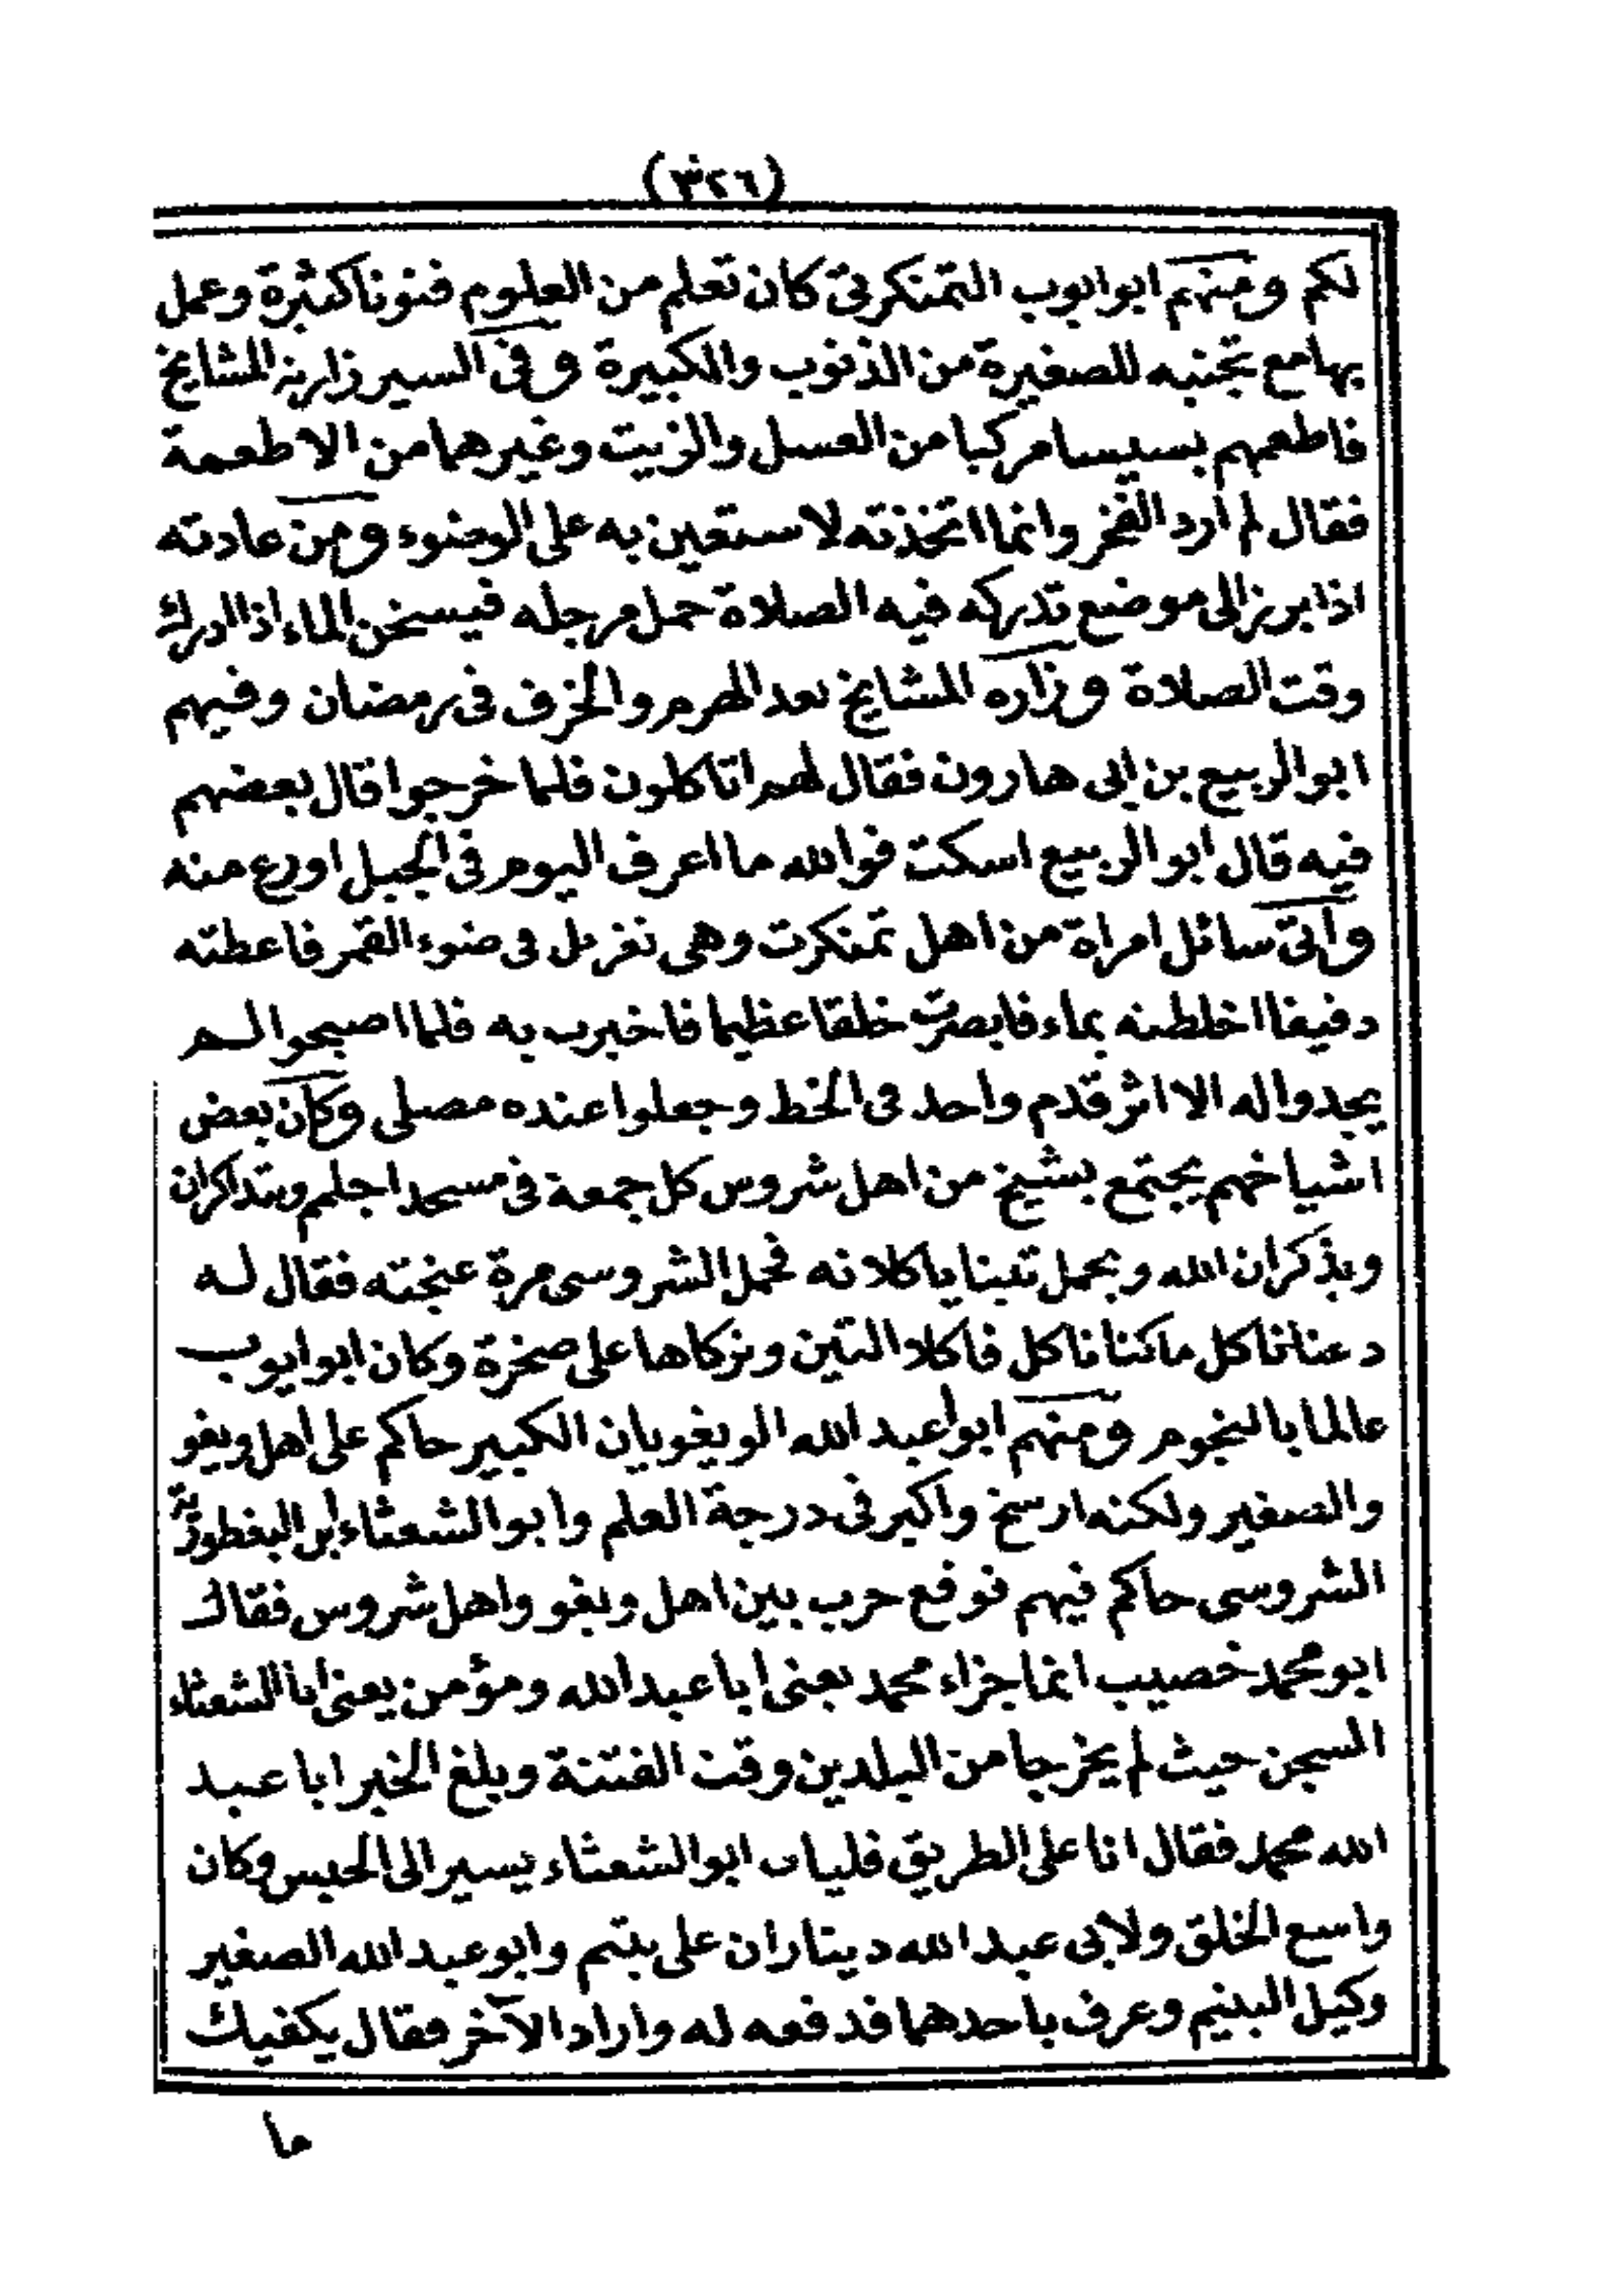 (٣٢٦)
لكم ومنهم ابو ايوب التمنكرتى كان تعلم من العلوم فنونا كثيرة وعمل
بها مع تجنبه للصغيرة من الذنوب والكبيرة وفى السير زاره المشايخ
فاطعمهم بسيسا مركبا من العسل والزيت وغيرهما من الاطعمة
فقال لم ارد الفخر وانما اتخذته لاستعين به على الوضوء ومن عادته
اذا برز الى موضع تدركه فيه الصلاة حمل مرجله فيسخن الماء اذا ادرك
وقت الصلاة وزاره المشايخ بعد الهرم والخرف فى رمضان وفيهم
ابو الربيع بن ابى هارون فقال لهم اتاكلون فلما خرجوا قال بعضهم
فيه قال ابو الربيع اسكت فوالله ما اعرف اليوم فى الجبل اورع منه
واتى سائل امراة من اهل تمنكرت وهى تغزل فى ضوء القمر فاعطته
دقيقا اخلطته بماء فابصرت خلقا عظيما فاخبرت به فلما اصبحوا لم
يجدوا له الا اثر قدم واحد فى الخط وجعلوا عنده مصلى وكان بعض
اشياخهم يجتمع بشيخ من اهل شروس كل جمعة فى مسجد اجلم ويتذاكران
ويذكران الله ويحمل تينا ياكلانه فحمل الشروسى مرة عنجته فقال له
دعنا ناكل ما كنا ناكل فاكلا التين وتركاها على صخرة وكان ابو ايوب
عالما بالنجوم ومنهم ابو عبد الله الويغويان الكبير حاكم على اهل ويغو
والصغير ولكنه ارسخ واكبر فى درجة العلم وابو الشعثاء ابن البغطورية
الشروسى حاكم فيهم فوقع حرب بين اهل ويغو واهل شروس فقال
ابو محمد خصيب انما جزاء محمد يعنى ابا عبد الله ومؤمن يعنى ابا الشعثاء
السجن حيث لم يخرجا من البلدين وقت الفتنة وبلغ الخبر ابا عبد
الله محمد فقال انا على الطريق فليات ابو الشعثاء يسير الى الحبس وكان
واسع الخلق ولابى عبد الله ديناران على يتيم وابو عبد الله الصغير
وكيل اليتيم وعرف باحدهما فدفعه له واراد الآخر فقال يكفيك
ما